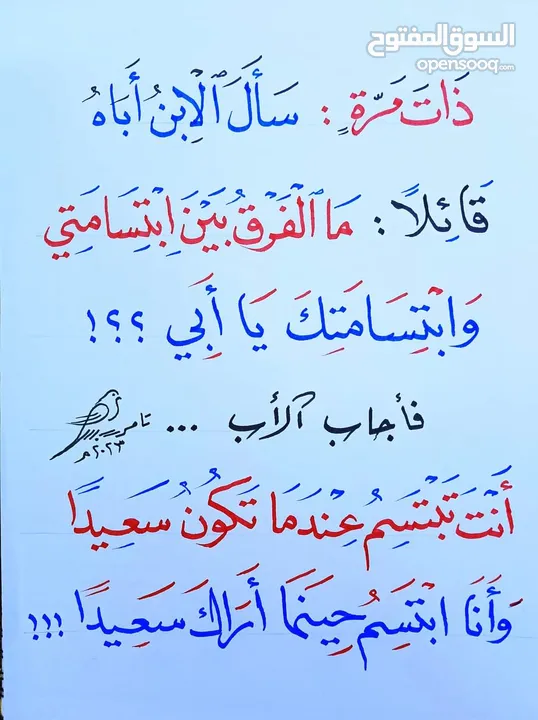 السوق المفتوح
opensooq.com
ذَاتَ مَرَّةٍ : سَأَلَ ٱلْاِبْنُ أَبَاهُ
قَائِلًا : مَا ٱلْفَرْقُ بَيْنَ اِبْتِسَامَتِي
وَابْتِسَامَتِكَ يَا أَبِي ؟؟!
فأجاب الأب ...
تامر
٢٠٢٣م
أَنْتَ تَبْتَسِمُ عِنْدَمَا تَكُونُ سَعِيدًا
وَأَنَا ابْتَسِمُ حِينَمَا أَرَاكَ سَعِيدًا !!!